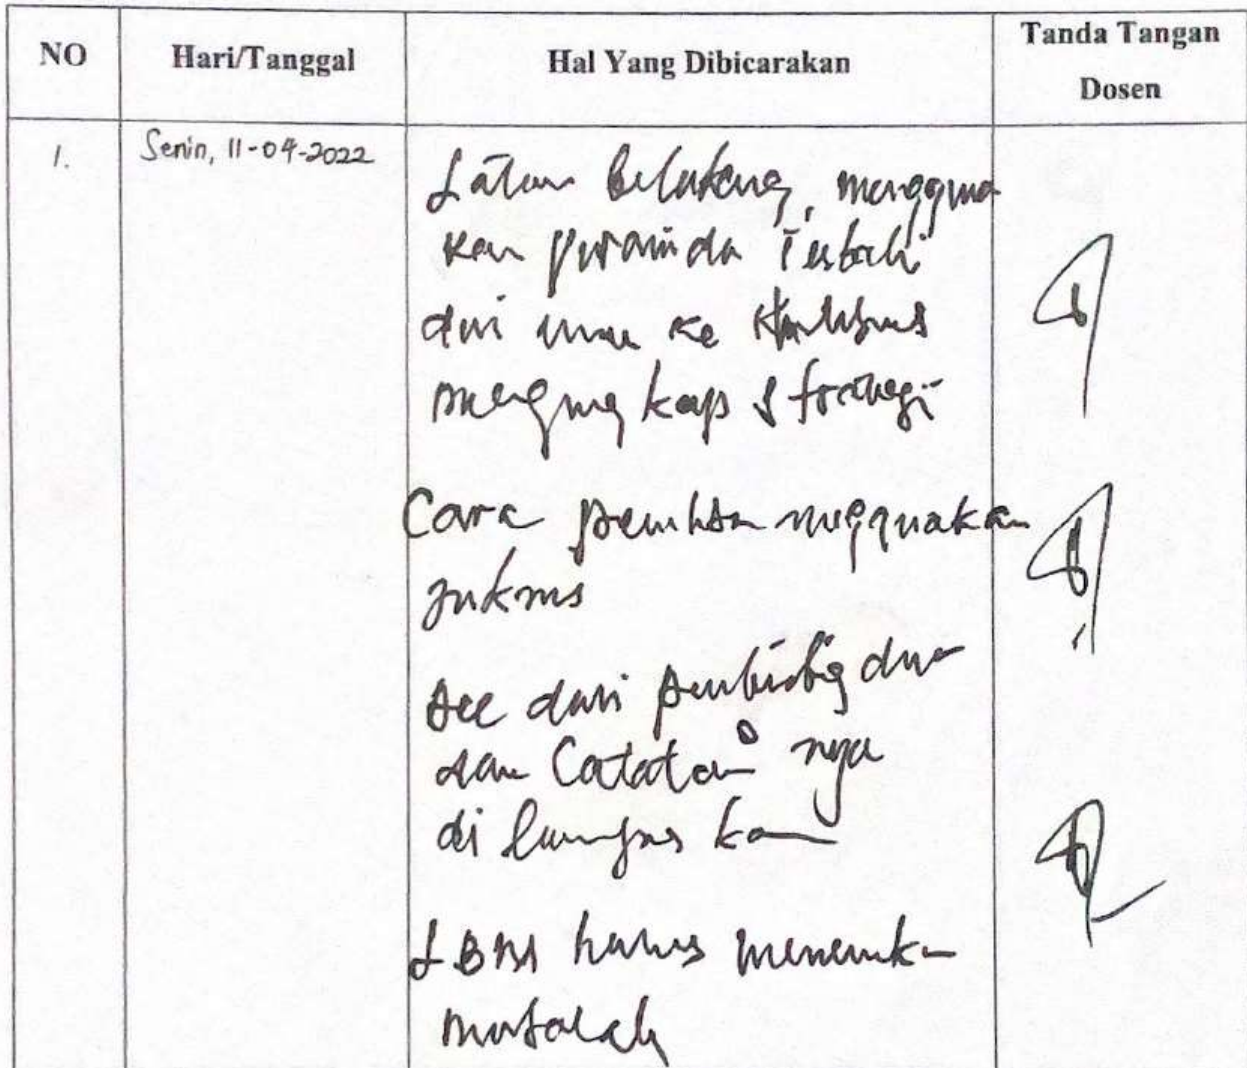 NO
Hari/Tanggal
Hal Yang Dibicarakan
Tanda Tangan
Dosen
1.
Senin, 11-04-2022
Latar Belakang, mengguna
kan piramida Terbalik
dari umum ke khusus
mengungkap strategi
Cara penulisan menggunakan
juknis
Acc dari pembimbing dua
dan Catatan nya
di lampirkan
LBM harus menemukan
masalah